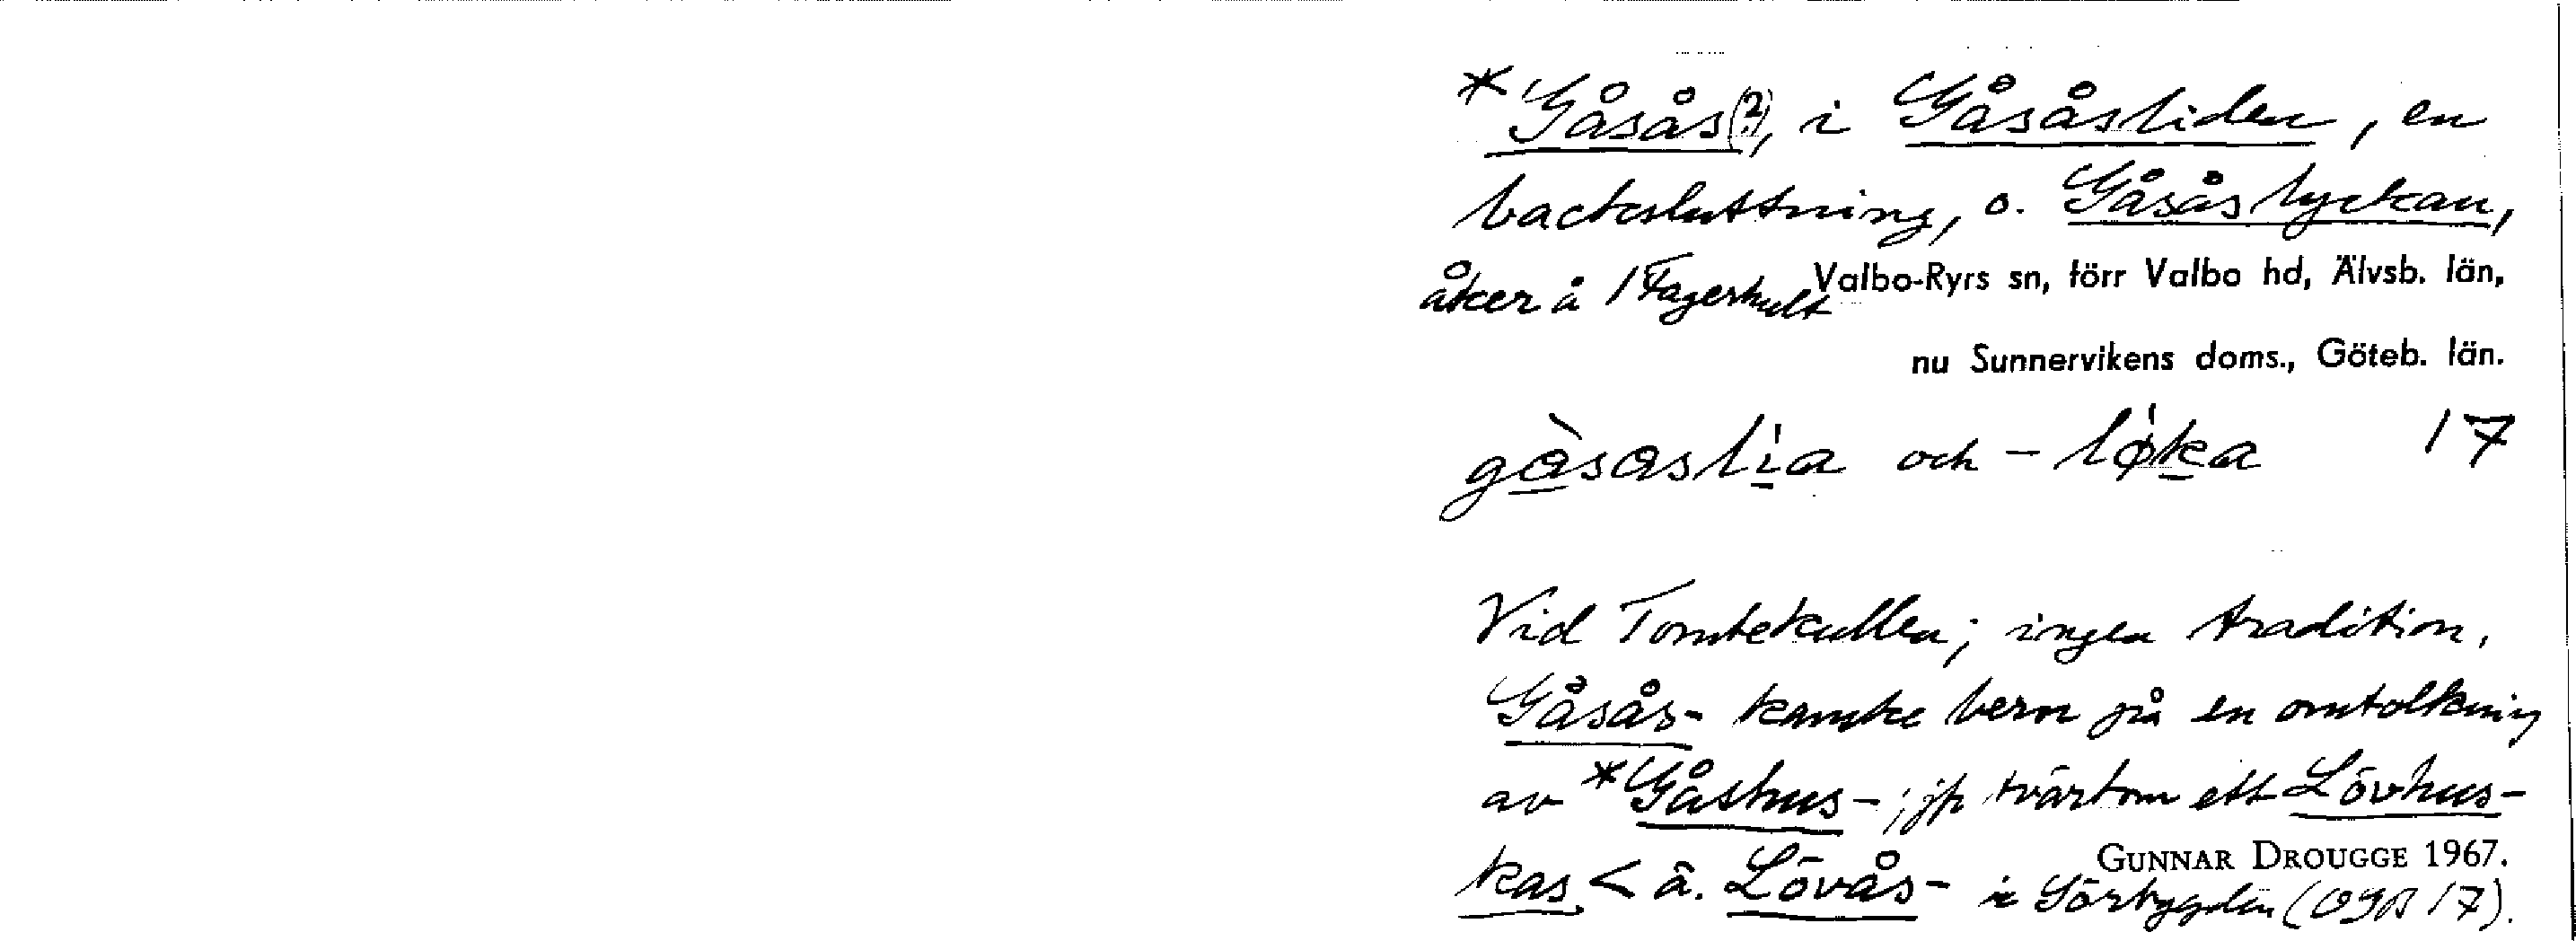 *Gåsås(?), i Gåsåsliden, en
backsluttning, o. Gåsåslyckan,
åker å 1 Fagerhult Valbo-Ryrs sn, förr Valbo hd, Älvsb. län,
nu Sunnervikens doms., Göteb. län.
gàsaslia och -lø̍ka 17
Vid Tomtekullen; ingen tradition,
Gåsås- kanske beror på en omtolkning
av *Gåshus-; jfr tvärtom ett Lövhus-
kas < ä. Lövås- i Sörbygden (OGB 17).
GUNNAR DROUGGE 1967.